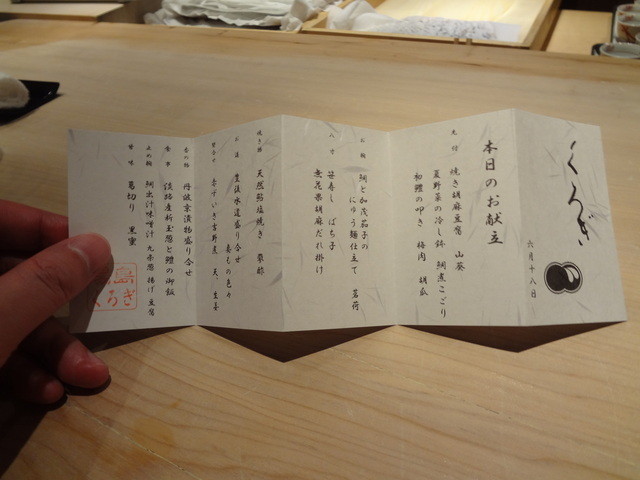 くろぎ
六月十八日
本日のお献立
先付 焼き胡麻豆腐 山葵
夏野菜の冷し鉢 鯛煮こごり
初鰹の叩き 梅肉 胡瓜
お椀 鯛と加茂茄子の
にゅう麺仕立て 茗荷
八寸 笹寿し ばち子
無花果胡麻だれ掛け
焼き物 天然鮎塩焼き 蓼酢
お造 豊後水道盛り合せ 妻もの色々
炊合せ
香の物 丹波京漬物盛り合せ
食事 淡路産新玉葱と鱧の御飯
止め椀 鯛出汁味噌汁 九条葱 揚げ 豆腐
甘味 葛切り 黒蜜
くろぎ